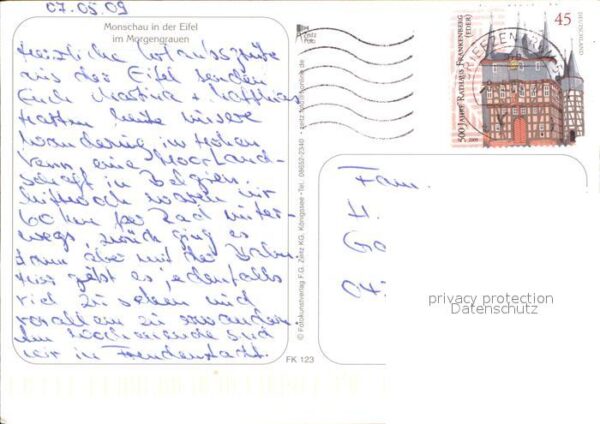 07.05.09
Monschau in der Eifel
im Morgengrauen
Herzliche Urlaubsgrüße
aus der Eifel senden
Euch Martina + Matthias
Hatten heute unsere
Wanderung im Hohen
Venn, eine Moorland-
schaft in Belgien.
Mittwoch waren wir
60 km per Rad unter-
wegs, zurück ging es
dann aber mit der Bahn.
Hier gibt es jedenfalls
viel zu sehen und
vor allem zu wandern.
Am Wochenende sind
wir in Freudenstadt.
© Fotokunstverlag F.G. Zeitz KG, Königssee · Tel. 08652-2340
FK 123
45
DEUTSCHLAND
500 JAHRE RATHAUS FRANKENBERG
(EDER)
2009
Fam.
H.
Go
047
privacy protection
Datenschutz